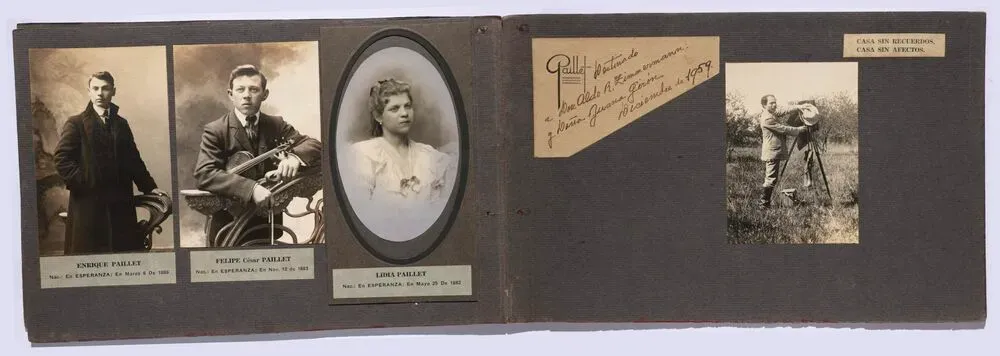 ENRIQUE PAILLET
Nac.: En ESPERANZA; En Marzo 6 De 1886
FELIPE César PAILLET
Nac.: En ESPERANZA; En Nov. 12 de 1883
LIDIA PAILLET
Nac.: En ESPERANZA; En Mayo 25 De 1882
Paillet
Destinado
a Don Aldo R. Zimmermann
y Doña Juana Girón
Diciembre de 1959
CASA SIN RECUERDOS,
CASA SIN AFECTOS.